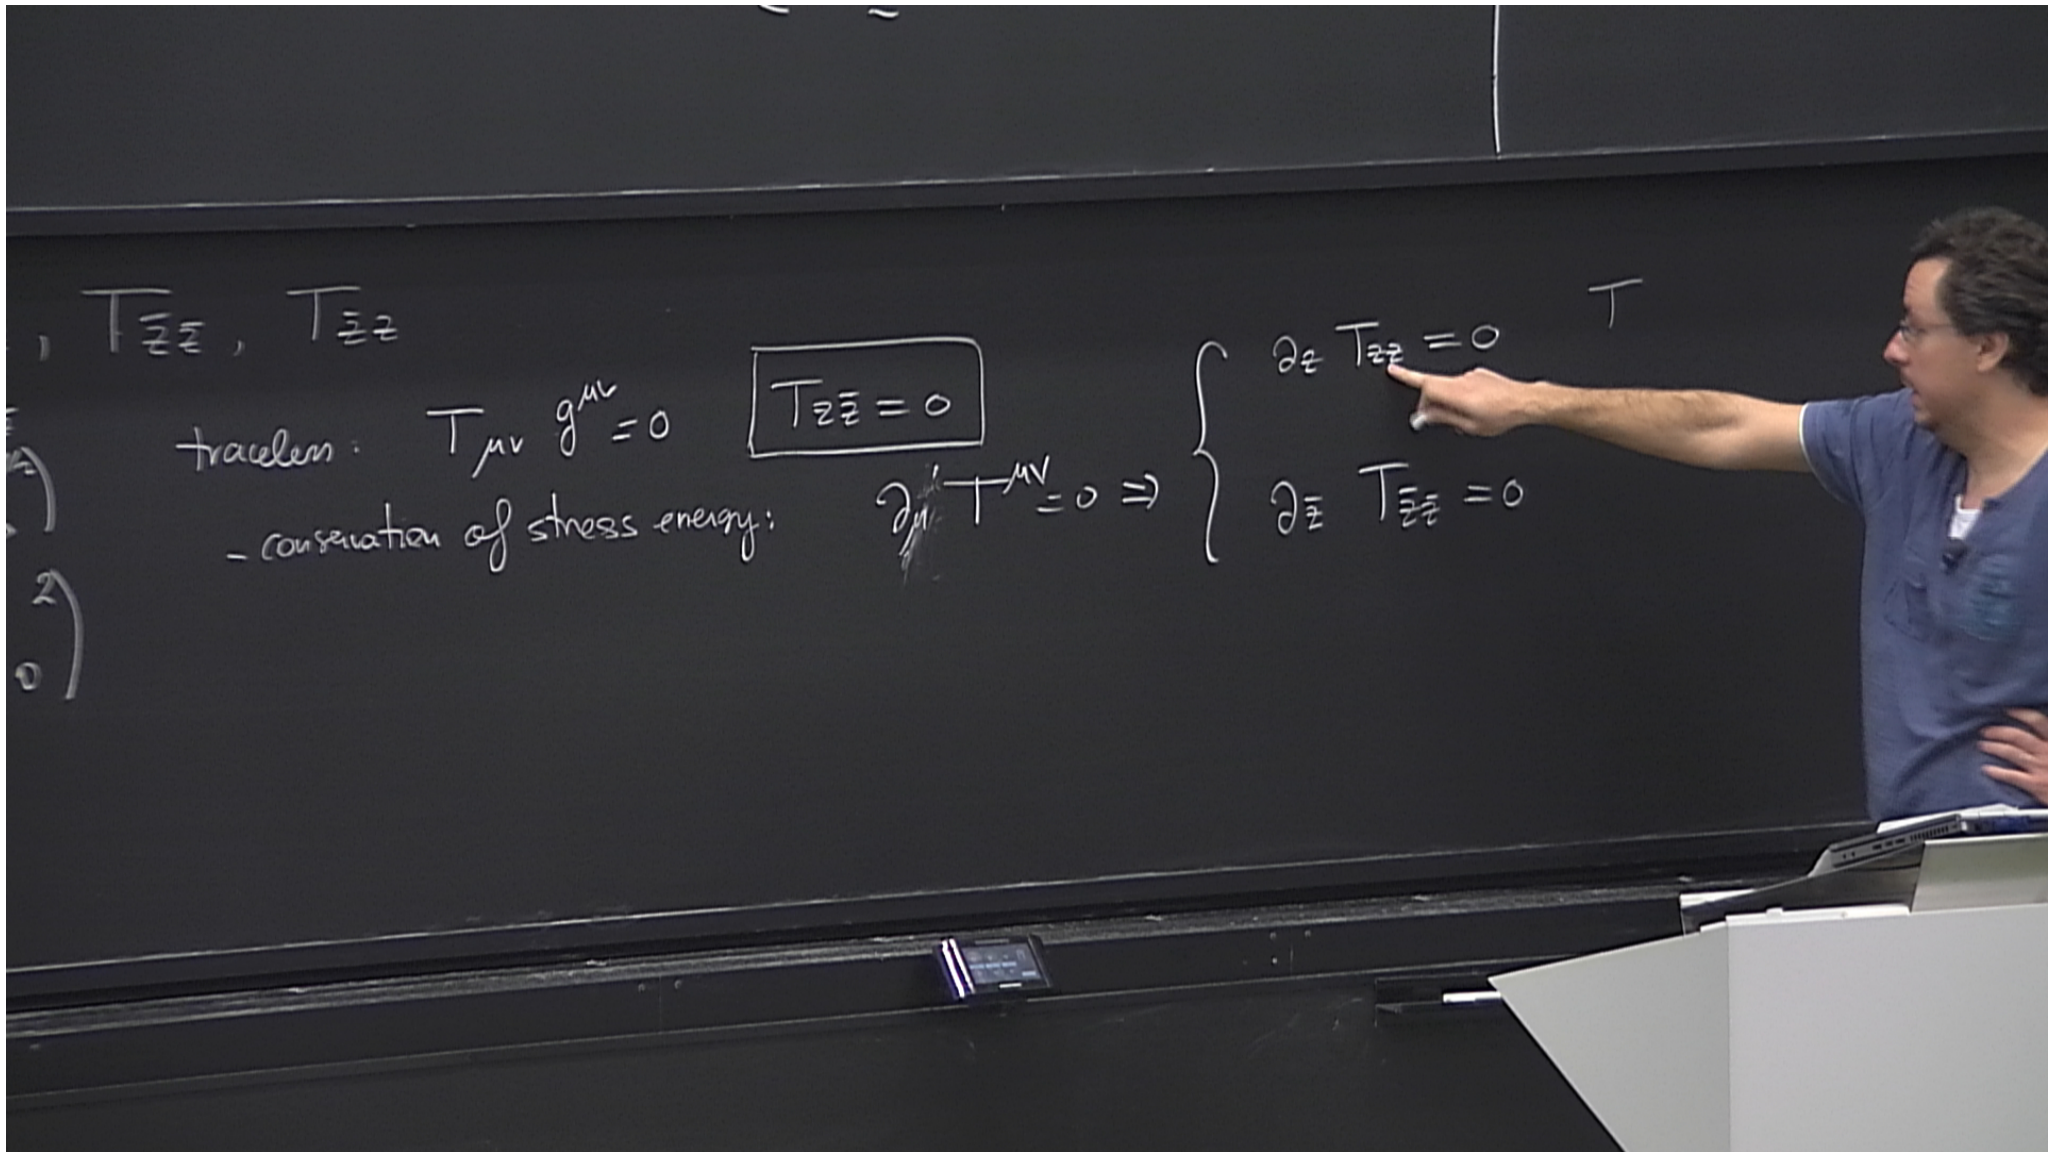 , T_{z̄z̄}, T_{z̄z}
traceless: T_{μν} g^{μν} = 0 T_{zz̄} = 0
- conservation of stress energy: ∂_μ T^{μν} = 0 ⇒
∂_z T_{zz} = 0 T
∂_{z̄} T_{z̄z̄} = 0
2)
0)